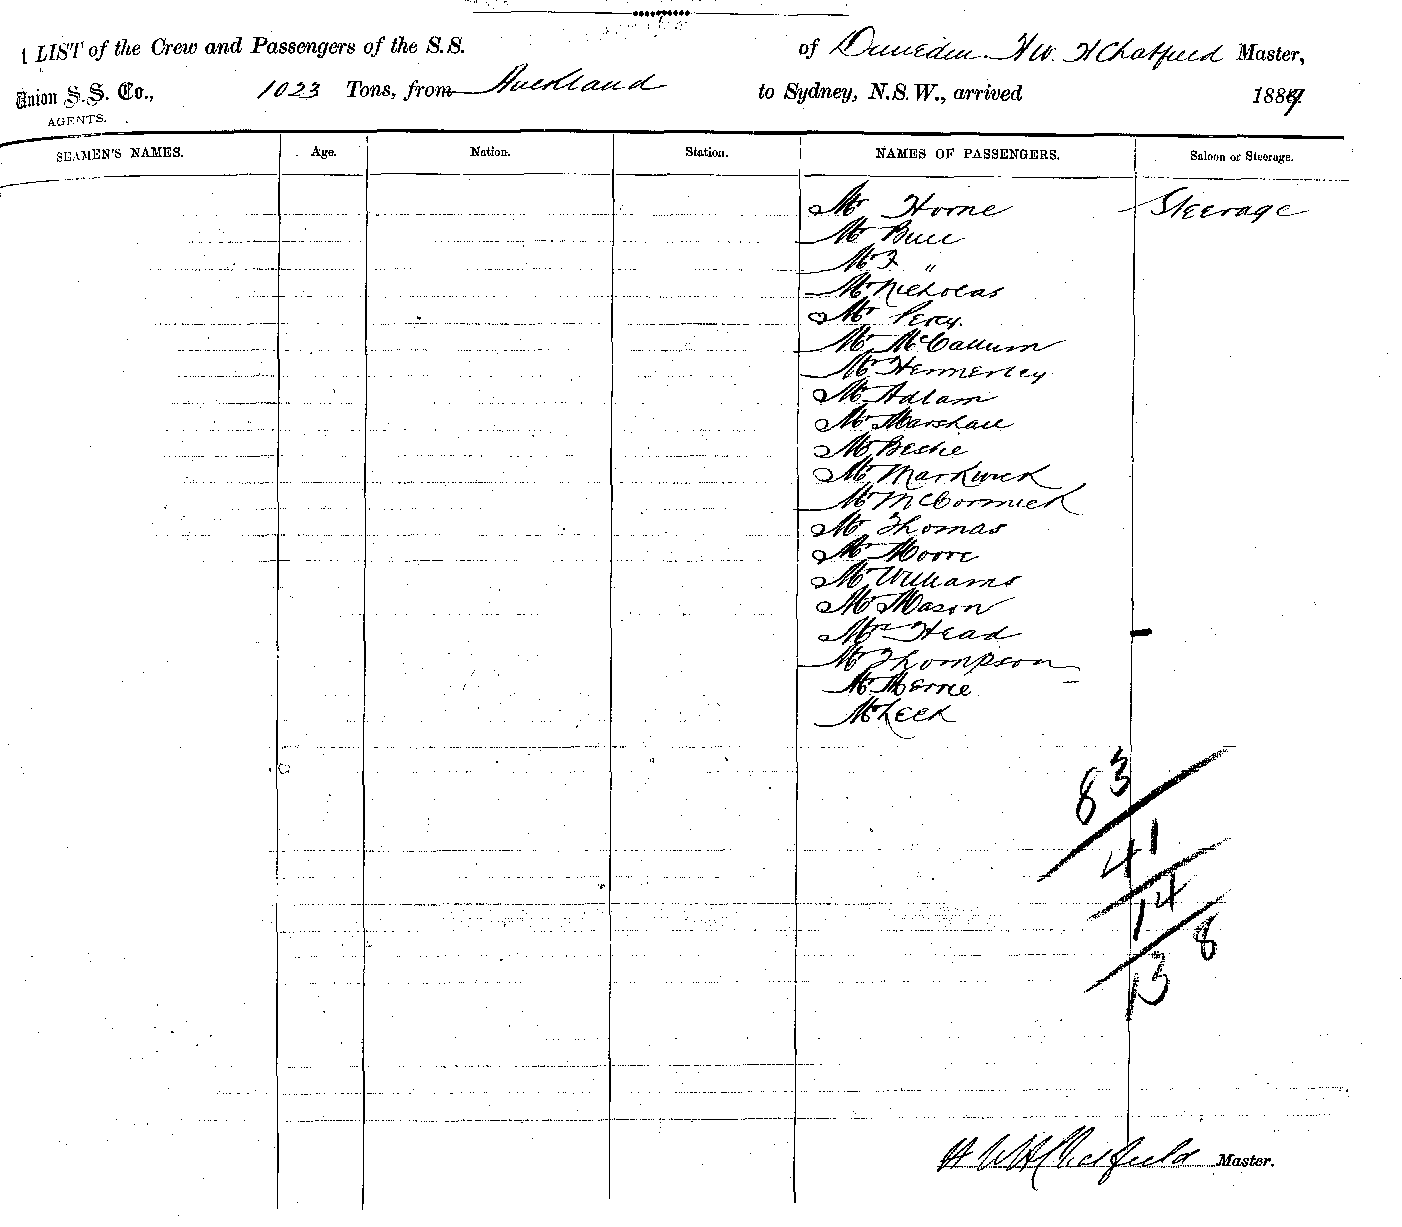 LIST of the Crew and Passengers of the S.S. of Dunedin H W. H Chatfield Master,
Union S.S. Co., 1023 Tons, from Auckland to Sydney, N.S.W., arrived 1889
AGENTS.
SEAMEN'S NAMES. Age. Nation. Station. NAMES OF PASSENGERS. Saloon or Steerage.
Mr Horne Steerage
Mr Bull
Mr F "
Mr Nicholas
Mr Percy
Mr McCallum
Mr Hennerley
Mr Adlam
Mr Marshall
Mr
Mr Markwick
Mr McCormick
Mr Thomas
Mr Moore
Mr Williams
Mr Mason
Mrs Head
Mr Thompson
Mr
Mr Leck
83
41
14
8
13
H W H Chatfield Master.